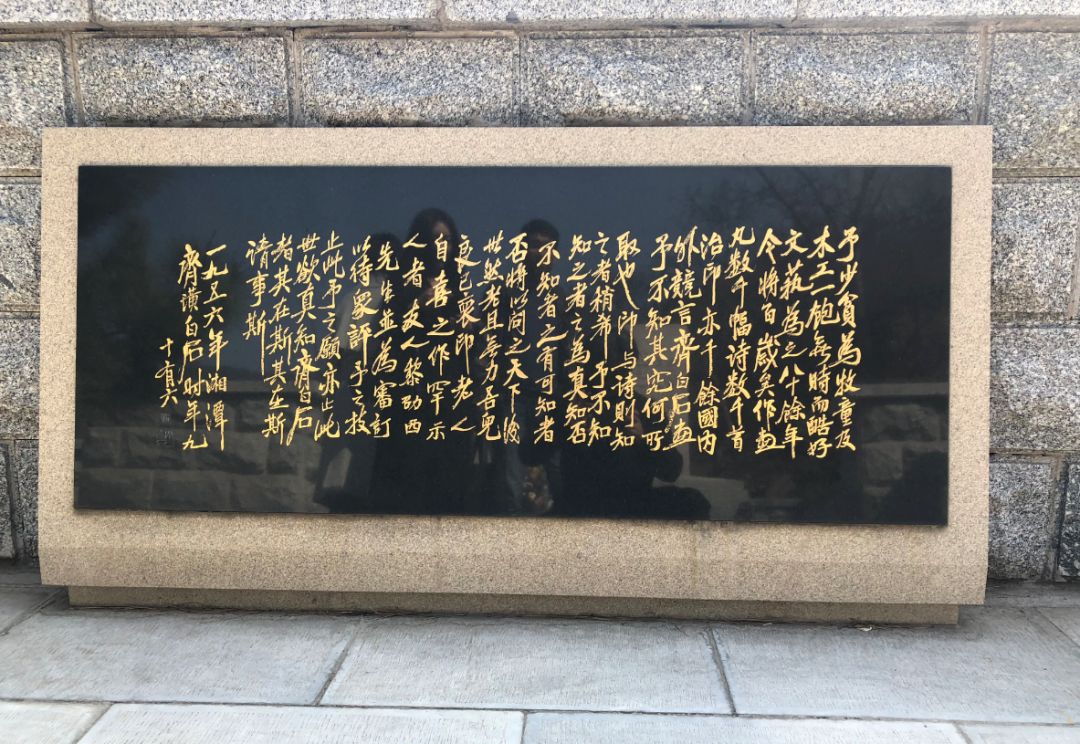 予少貧為牧童及
木工一飽無時而酷好
文藝為之八十餘年
今將百歲矣作画
凡數千幅詩數千首
治印亦千餘國內
外競言齊白石画
予不知其究何所
取也印與詩則知
之者稍希予不知
知之者之為真知否
不知者之有可知者
否將以問之天下後
世然老且無力吾兒
良已裒印老人
自喜之作罕示
人者友人黎劭西
先生並為審訂
以待眾評予之技
止此予之願亦止此
世欲真知齊白石
者其在斯其在斯
請事斯
一九五六年湘潭
齊璜白石时年九
十有六